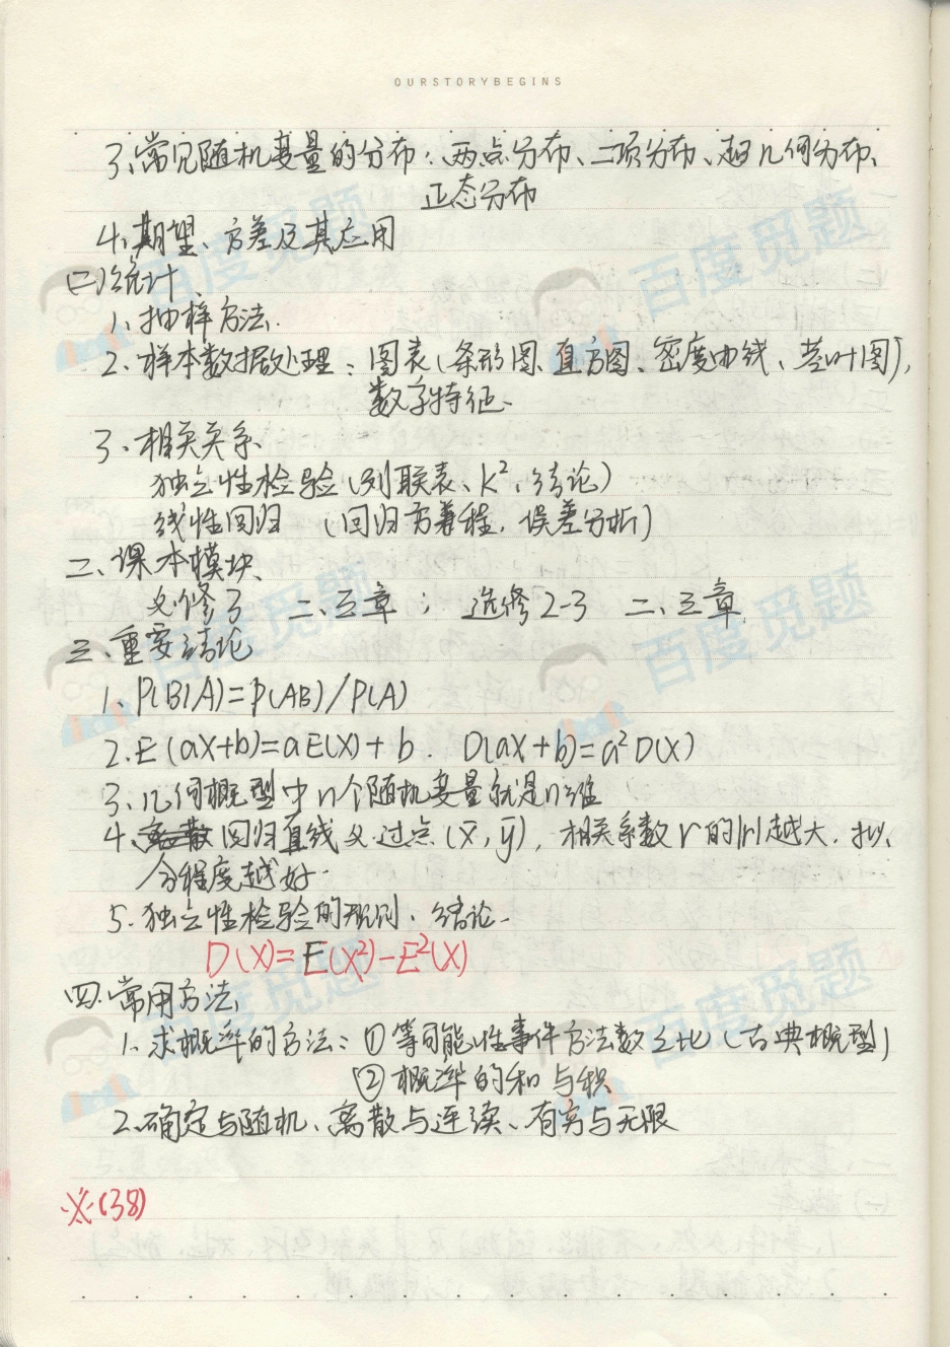 OURSTORYBEGINS
3、常见随机变量的分布：两点分布、二项分布、超几何分布、
正态分布
4、期望、方差及其应用
(二)统计
1、抽样方法.
2、样本数据处理：图表(条形图、直方图、密度曲线、茎叶图),
数字特征.
3、相关关系.
独立性检验(列联表、K²、结论)
线性回归 (回归方程、误差分析)
二、课本模块
必修3 二、三章； 选修2-3 二、三章.
三、重要结论
1、P(B|A)=P(AB)/P(A)
2.E(aX+b)=aE(X)+b. D(aX+b)=a²D(X)
3、几何概型中n个随机变量就是n维
4、回归直线必过点(x̄,ȳ), 相关系数r的|r|越大, 拟
合程度越好.
5.独立性检验的规则、结论.
D(X)=E(X²)-E²(X)
四.常用方法
1、求概率的方法：①等可能性事件方法数之比(古典概型)
②概率的和与积
2、确定与随机、离散与连续、有穷与无限
※(38)
百度觅题
百度觅题
百度觅题
百度觅题
百度觅题
百度觅题